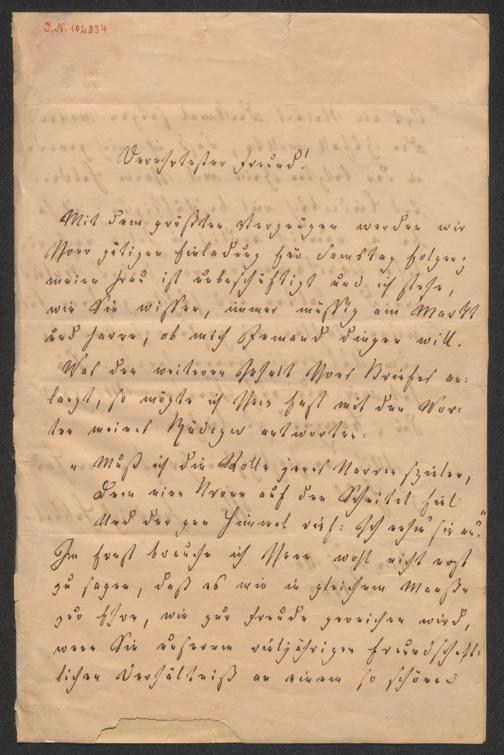 I.N. 102834
Verehrtester Freund!
Mit dem größten Vergnügen werden wir
Ihrer gütigen Einladung für Samstag folgen;
meine Frau ist unbeschäftigt und ich stehe,
wie Sie wissen, immer müssig am Markt
und harre, ob mich Jemand dingen will.
Was den weiteren Inhalt Ihres Briefes an-
langt, so mögte ich Ihnen fast mit den Wor-
ten meines Rüdiger antworten:
„Muß ich die Rolle jenes Narren spielen,
Dem eine Krone auf den Scheitel fiel
Und der gen Himmel rief: Ich nehm' sie an?"
Im Ernst brauche ich Ihnen wohl nicht erst
zu sagen, daß es mir in gleichem Maaße
zur Ehre, wie zur Freude gereichen wird,
wenn Sie unserem vieljährigen freundschaft-
lichen Verhältniß an einem so schönen